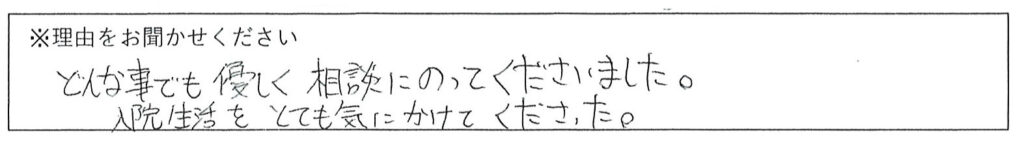 ※理由をお聞かせください
どんな事でも優しく相談にのってくださいました。
入院生活をとても気にかけてくださった。